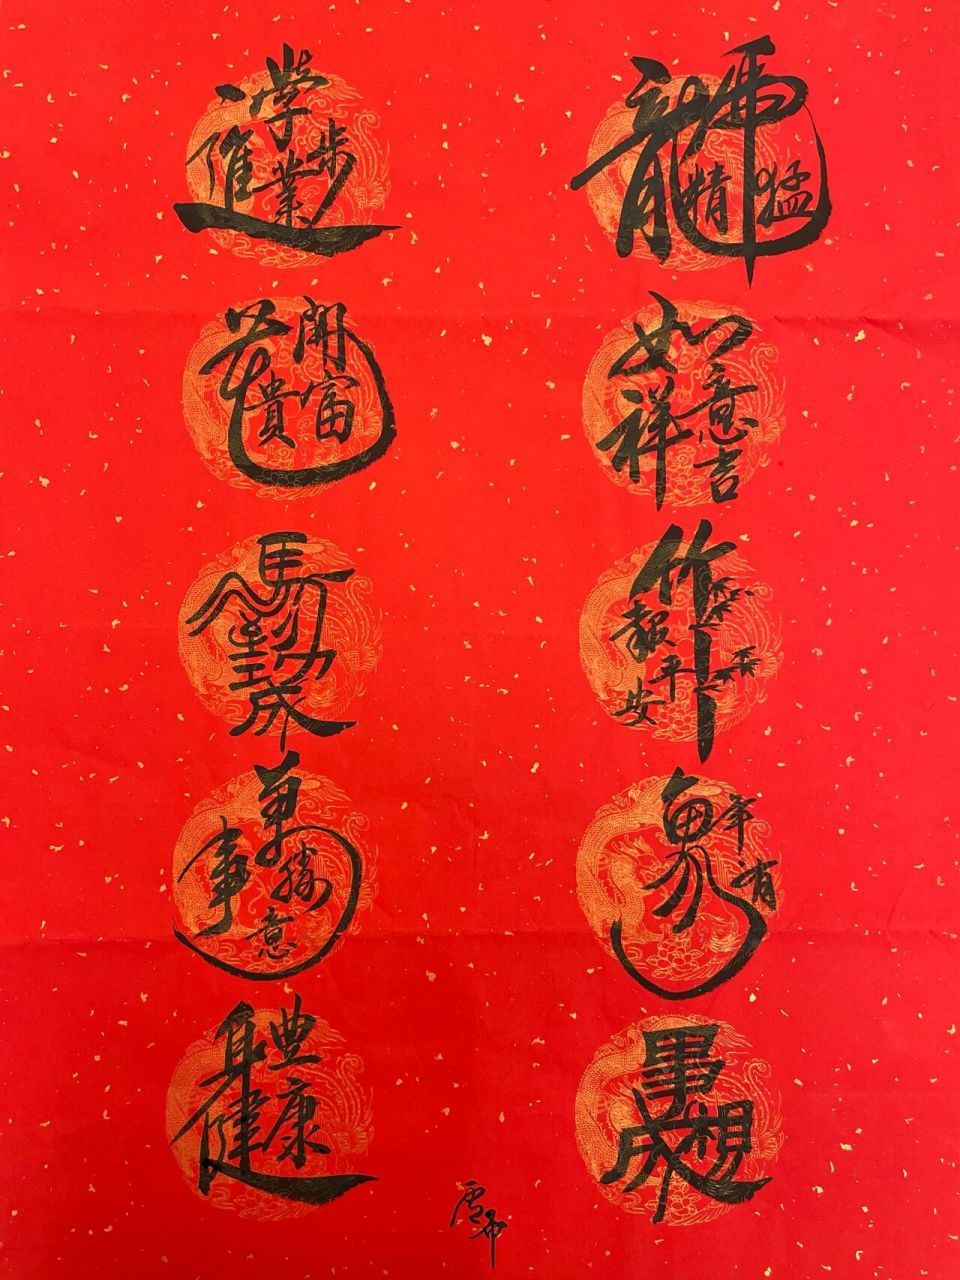 龍精虎猛
如意吉祥
竹報平安
年年有魚
心想事成
學業進步
花開富貴
馬到功成
萬事勝意
身體健康